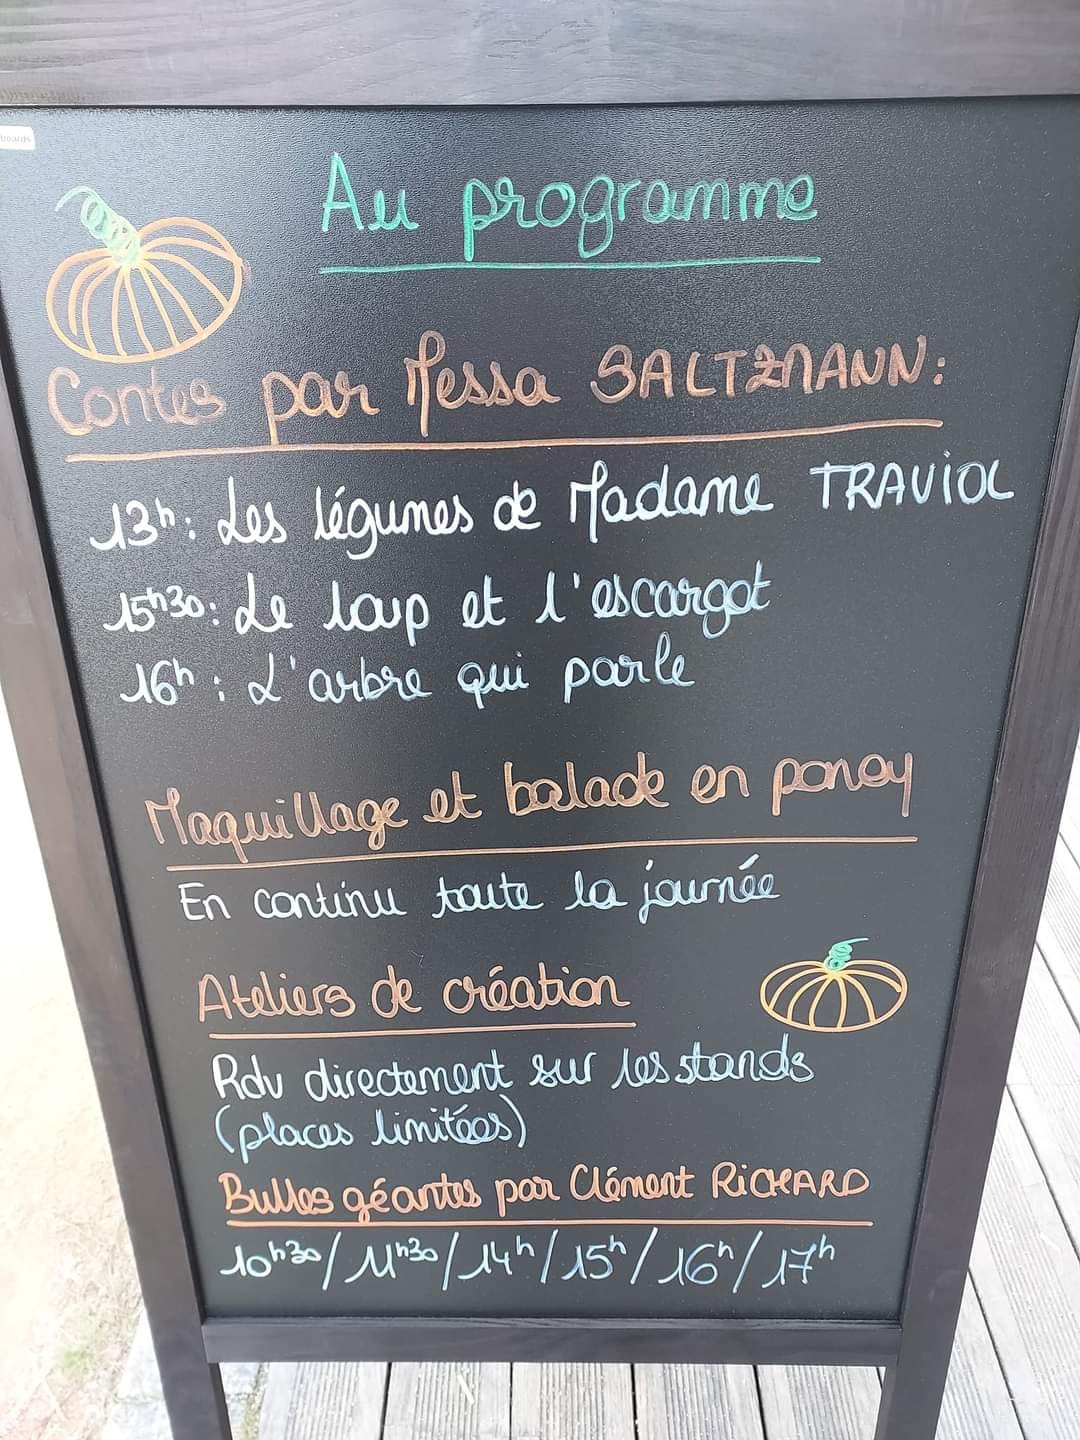 boards
Au programme
Contes par Messa SALTZMANN:
13h: Les légumes de Madame TRAVIOL
15h30: Le loup et l'escargot
16h: L'arbre qui parle
Maquillage et balade en poney
En continu toute la journée
Ateliers de création
Rdv directement sur les stands
(places limitées)
Bulles géantes par Clément RICHARD
10h30/11h30/14h/15h/16h/17h